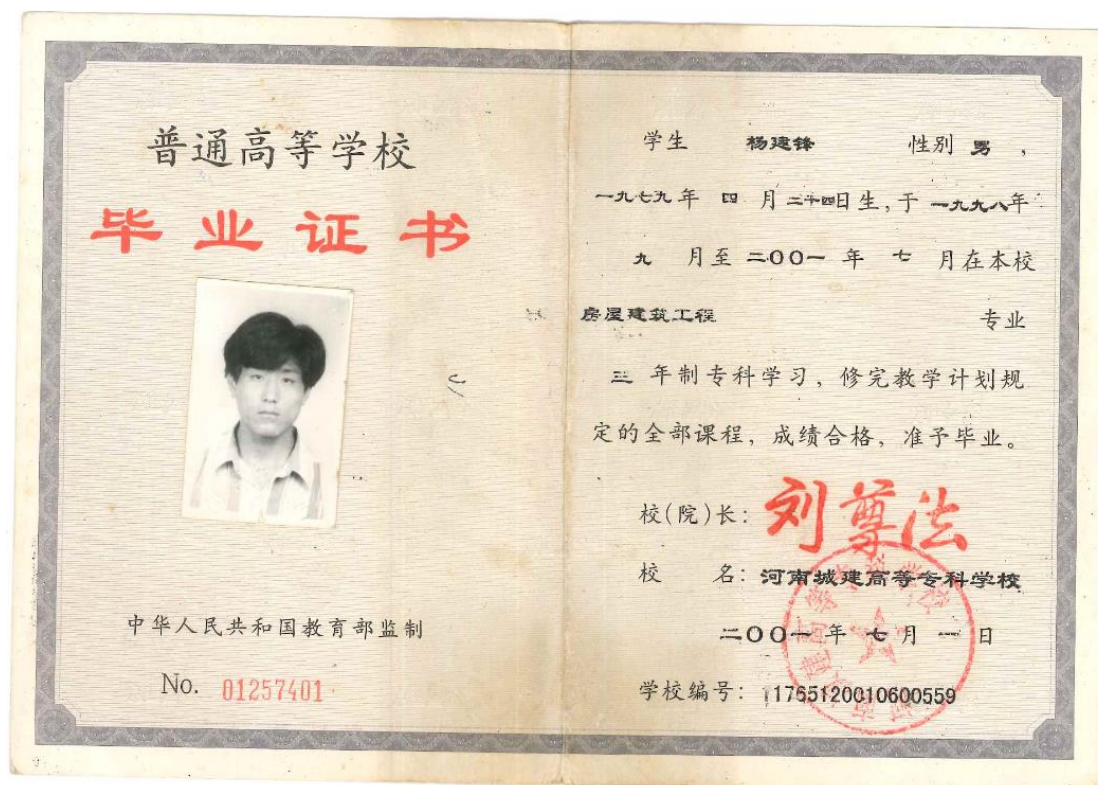 普通高等学校
毕业证书
中华人民共和国教育部监制
No. 01257401
学生 杨建锋 性别 男，
一九七九年 四 月二十四日生,于 一九九八年
九 月至 二〇〇一 年 七 月在本校
房屋建筑工程 专业
三 年制专科学习，修完教学计划规
定的全部课程，成绩合格，准予毕业。
校(院)长：刘尊法
校 名：河南城建高等专科学校
二〇〇一年 七月 一 日
学校编号：11765120010600559